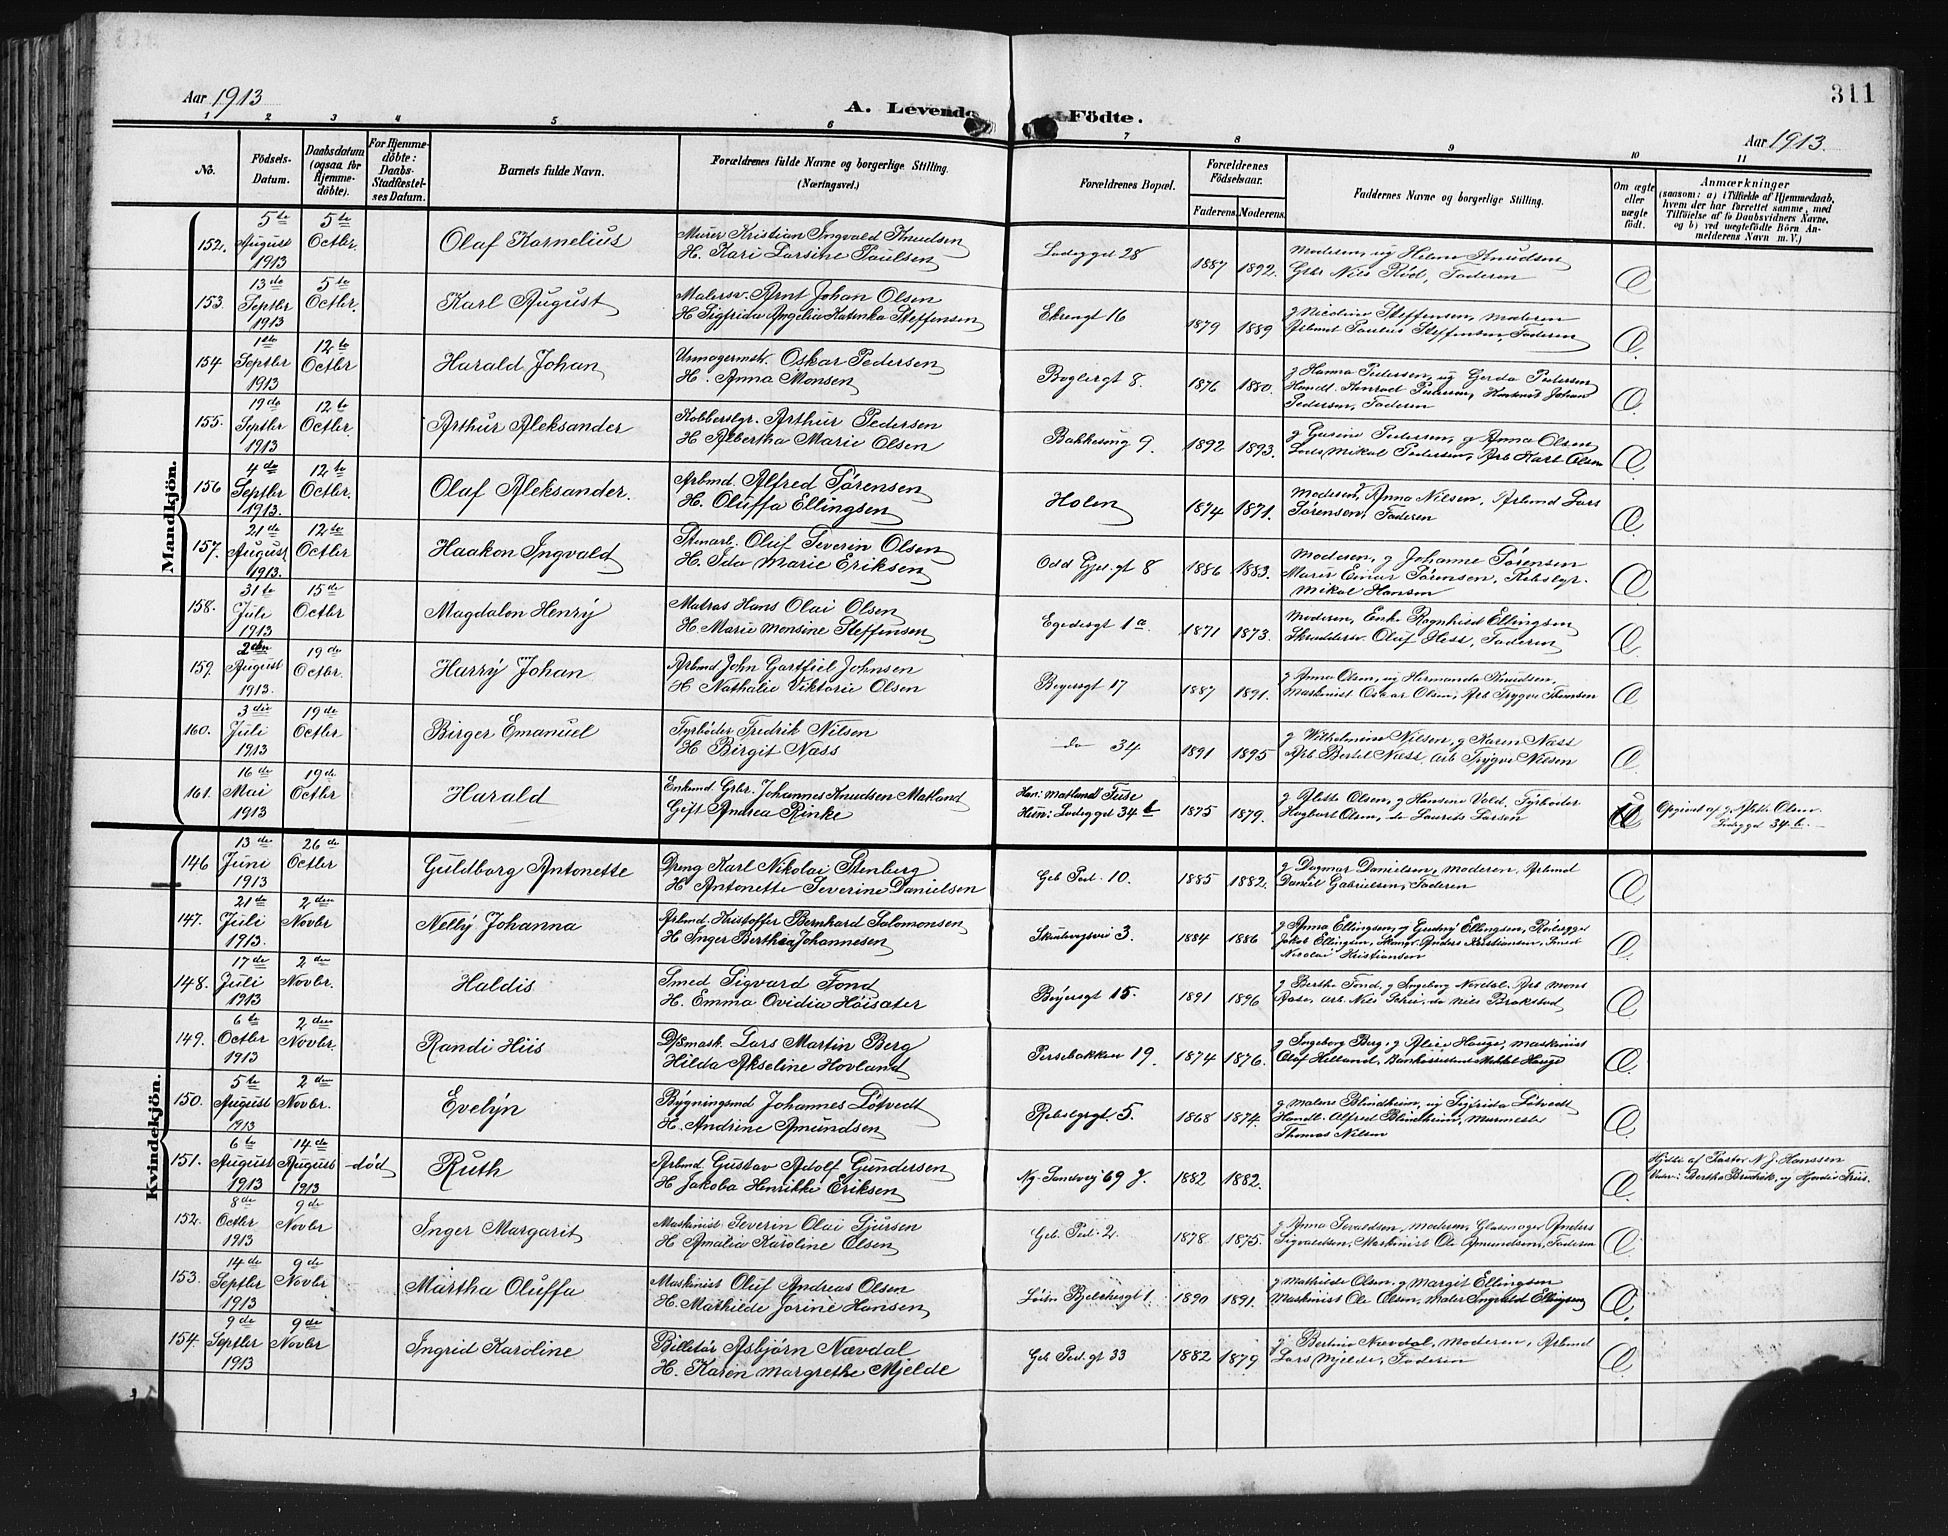 311
Aar 1913
A. Levende Födte.
Aar 1913.
1 2 3 4 5 6 7 8 9 10 11
No.
Födsels-
Datum.
Daabsdatum
(ogsaa for
Hjemme-
döbte).
For Hjemme-
döbte:
Daabs-
Stadfæstel-
ses Datum.
Barnets fulde Navn.
Forældrenes fulde Navne og borgerlige Stilling.
(Næringsvei.)
Forældrenes Bopæl.
Forældrenes
Födselsaar.
Faderens. Moderens.
Faddernes Navne og borgerlige Stilling.
Om ægte
eller
uægte
födt.
Anmærkninger
(saasom: a) i Tilfælde af Hjemmedaab,
hvem der har forrettet samme, med
Tilföielse af to Daabsvidners Navne,
og b) ved uægtefödte Börn An-
melderens Navn m. V.)
Mandkjön.
152. 5te August 1913 5te Octbr. Olaf Kornelius
Murer Kristian Ingvald Knudsen
H. Kari Larsine Paulsen
Ladeggt 28 1887 1892.
Moderen, ug Helene Knudsen
Grbr Nils Rød, Faderen
153. 13de Septbr 1913 5te Octbr. Karl August
Malersv. Arnt Johan Olsen
H Sigfrida Angelia Katinka Steffensen
Ekrengt 16 1879 1889
g Nicoline Steffensen, Moderen
Arbmd Paulus Steffensen, Faderen
154 1ste Septbr 1913 12te Octbr Harald Johan
Urmagermstr. Oskar Pedersen
H. Anna Monsen
Boglergt 8. 1876 1880.
g Hanna Pedersen, ug Gerda Pedersen
Handl. Konrad Pedersen, Johan
Pedersen, Faderen
155. 19de Septbr 1913 12te Octbr. Arthur Aleksander
Kobberslgr. Arthur Pedersen
H Albertha Marie Olsen
Bakkesmug 9. 1892 1893.
g Gurine Pedersen, g Anna Olsen
Lods Mikal Pedersen, Arb Karl Olsen
156 4de Septbr 1913. 12te Octbr. Olaf Aleksander.
Arbmd. Alfred Sørensen
H. Oluffa Ellingsen
Holen 1874 1871.
Moderen, g Anna Nilsen, Arbmd Lars
Sørensen, Faderen
157. 21de August 1913. 12te Octbr Haakon Ingvald
Stenarb. Oluf Severin Olsen
H. Ida Marie Eriksen
Odd Gjel.gt 8 1886 1883.
Moderen, g Johanne Sørensen
Murer Einar Sørensen, Rebslgr.
Mikal Hansen
158. 31te Juli 1913 15de Octbr Magdalon Henry
Matros Hans Olai Olsen
H. Marie Monsine Steffensen
Egedesgt 1a 1871 1873.
Moderen, Enke Ragnhild Ellingsen
Skræddersv. Oluf Hess, Faderen
159. 2den August 1913. 19de Octbr. Harry Johan
Arbmd John Gartfiel Johnsen
H Nathalie Viktorie Olsen
Beyersgt 17 1887 1891.
g Anna Olsen, ug Hermanda Knudsen,
Maskinist Oskar Olsen, Arb Trygve Thomsen
160. 3die Juli 1913 19de Octbr Birger Emanuel
Fyrbøder Fredrik Nilsen
H Birgit Næss
do 34 1891 1895
g Wilhelmine Nilsen, g Karen Næss
Arb Bertel Næss, Arb Trygve Nilsen
161. 16de Mai 1913 19de Octbr Harald
Enkmd. Grbr. Johannes Knudsen Matland
Gift Andrea Rinke
Han: Matland Fuse
Hun: Ladeggt 34b 1875 1879.
g Alette Olsen, g Hansine Vold, Fyrbøder
Hagbart Olsen, do Laurits Larsen
Opgivet af g Alette Olsen
Ladeggt 34b.
Kvindekjön.
146 13de Juni 1913 26de Octbr Guldborg Antonette
Dreng Karl Nikolai Stenberg
H Antonette Severine Danielsen
Geb Ped. 10. 1885 1882.
g Dagmar Danielsen, Moderen, Arbmd
Daniel Gabrielsen, Faderen
147. 21de Juli 1913. 2den Novbr Nelly Johanna
Arbmd. Kristoffer Bernhard Salomonsen
H Inger Berthea Johannesen
Skudevigsvei 3. 1884 1886
g Anna Ellingsen, g Gudny Ellingsen,
Jakob Ellingsen, Anders Kristiansen, Smed
Nicolai Kristiansen
148. 17de Juli 1913 2den Novbr. Haldis
Smed Sigvard Fond
H. Emma Ovidia Höisæter
Beyersgt 15. 1891 1896
g Berthe Fond, g Ingeborg Nevdal, Arb Mons
Rose, Arb Nils do Nils Brakstad
149. 6te Octbr 1913 2den Novbr. Randi Hiis
D/smask. Lars Martin Berg
Hilda Akseline Hovland
Persebakken 19. 1874 1876.
g Ingeborg Berg, g Alice Hauge, Maskinist
Olaf Hilland, Bankassistent Hauge
150. 5te August 1913 2den Novbr. Evelyn
Bygningsmd Johannes Løtvedt
H. Andrine Amundsen
Rebslgrgt 5. 1868 1874.
g Malene Blindheim, ug Sigfrida Løtvedt
Handl. Alfred Blindheim, Murmester
Thomas Nilsen
151. 6te August 1913 14de August 1913 død Ruth
Arbmd. Gustav Adolf Gundersen
H Jakoba Henrikke Eriksen
Ny-Sandvig 69 g. 1882 1882.
Hjdbt. af Pastor N. J. Hanssen
Vidner: Bertha Brudvik, ug Hjørdis Friis.
152. 8de Octbr 1913 9de Novbr Inger Margarit
Maskinist Severin Olai Sjursen
H Amalia Karoline Olsen
Geb. Ped. 2. 1878 1875.
g Anna Sevaldsen, Moderen, Glasmager Anders
Sigvaldsen, Maskinist Ole Amundsen, Faderen
153. 14de Septbr 1913 9de Novbr Martha Oluffa
Maskinist Oluf Andreas Olsen
H. Mathilde Jorine Hansen
Bjelchesgt 1. 1890 1891.
g Mathilde Olsen, g Margit Ellingsen
Maskinist Ole Olsen, Maler Ingvald Ellingsen
154. 9de Septbr 1913 9de Novbr Ingrid Karoline
Billetør Asbjørn Nævdal
H. Karen Margrethe Mjelde
Geb Ped. gt 33 1882 1879
g Bertine Nævdal, Moderen, Arbmd
Lars Mjelde, Faderen